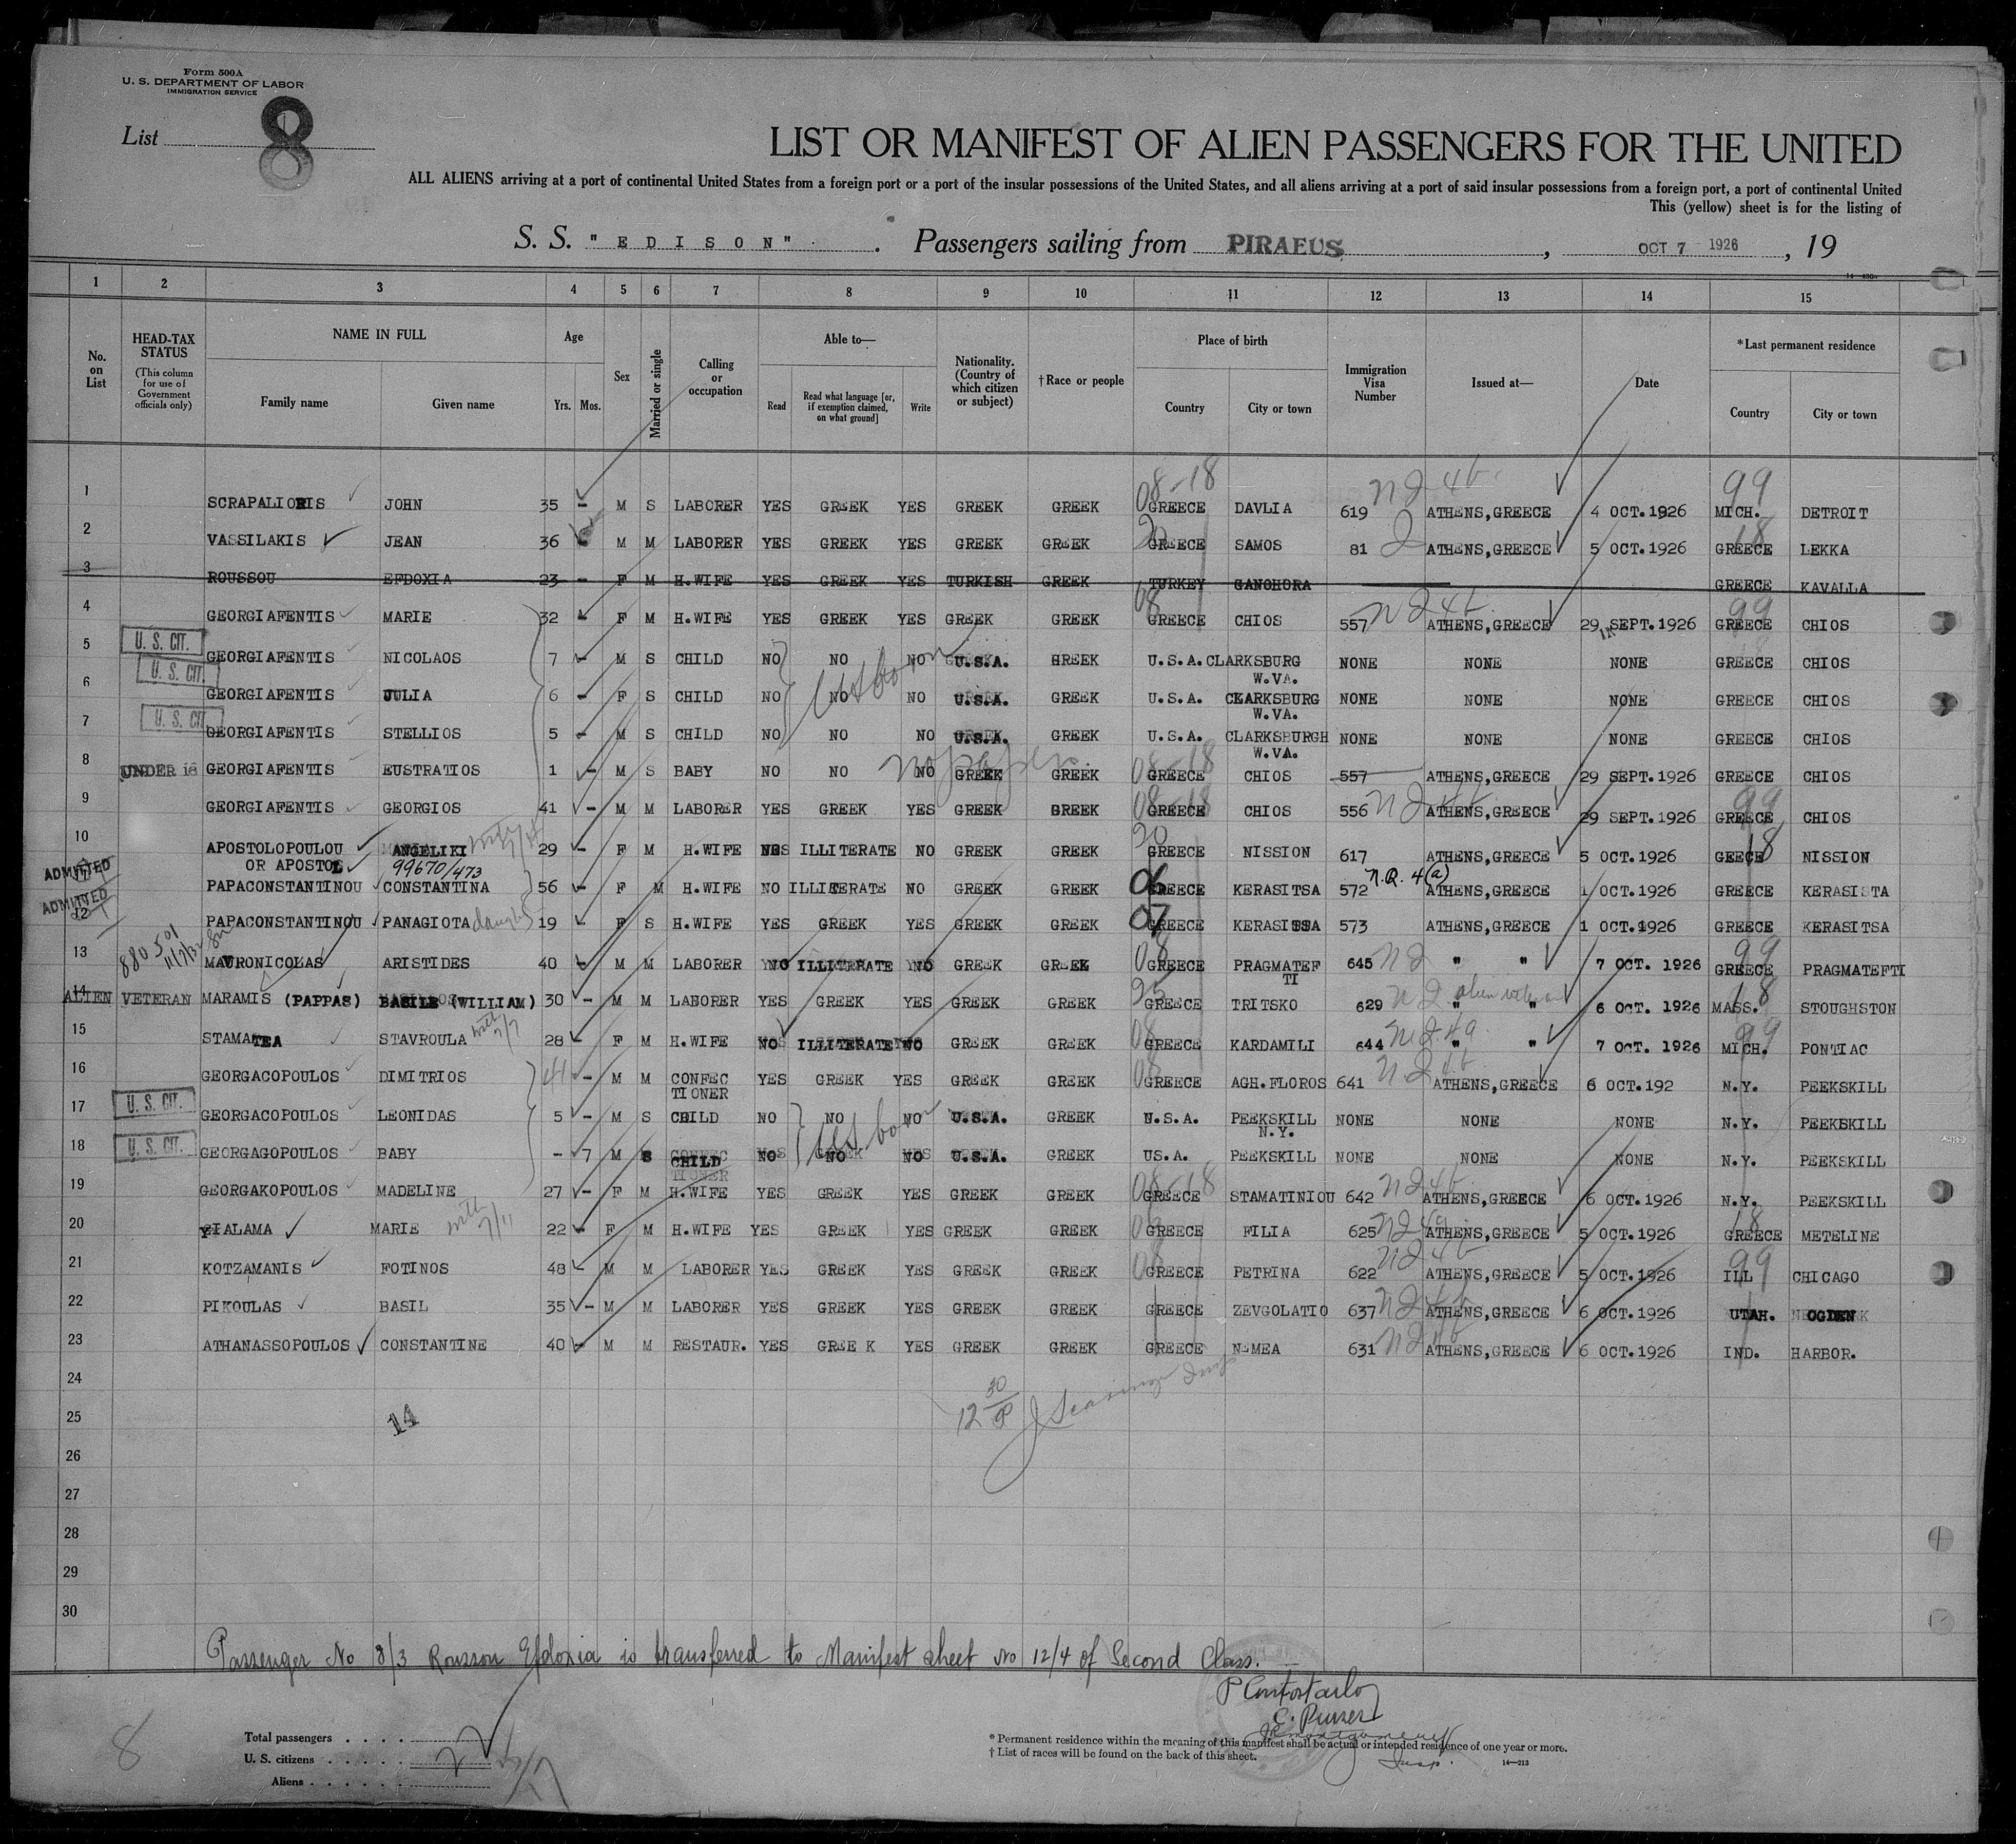 Form 500A
U. S. DEPARTMENT OF LABOR
IMMIGRATION SERVICE
List 8
LIST OR MANIFEST OF ALIEN PASSENGERS FOR THE UNITED
ALL ALIENS arriving at a port of continental United States from a foreign port or a port of the insular possessions of the United States, and all aliens arriving at a port of said insular possessions from a foreign port, a port of continental United
This (yellow) sheet is for the listing of
S. S. "EDISON" . Passengers sailing from PIRAEUS , OCT 7 1926 , 19
1 2 3 4 5 6 7 8 9 10 11 12 13 14 15
No. on List
HEAD-TAX STATUS (This column for use of Government officials only)
NAME IN FULL Family name Given name
Age Yrs. Mos.
Sex
Married or single
Calling or occupation
Able to— Read Read what language [or, if exemption claimed, on what ground] Write
Nationality. (Country of which citizen or subject)
†Race or people
Place of birth Country City or town
Immigration Visa Number
Issued at—
Date
*Last permanent residence Country City or town
1 SCRAPALIORIS JOHN 35 - M S LABORER YES GREEK YES GREEK GREEK 08-18 GREECE DAVLIA 619 ATHENS,GREECE 4 OCT.1926 99 MICH. DETROIT
2 VASSILAKIS JEAN 36 - M M LABORER YES GREEK YES GREEK GREEK GREECE SAMOS 81 ATHENS,GREECE 5 OCT.1926 18 GREECE LEKKA
3 ROUSSOU EFDOXIA 23 - F M H.WIFE YES GREEK YES TURKISH GREEK TURKEY GANOHORA GREECE KAVALLA
4 GEORGIAFENTIS MARIE 32 - F M H.WIFE YES GREEK YES GREEK GREEK 08 GREECE CHIOS 557 ATHENS,GREECE 29 SEPT.1926 99 GREECE CHIOS
5 U. S. CIT. GEORGIAFENTIS NICOLAOS 7 - M S CHILD NO NO NO U.S.A. GREEK U.S.A. CLARKSBURG W.VA. NONE NONE NONE GREECE CHIOS
6 U. S. CIT. GEORGIAFENTIS JULIA 6 - F S CHILD NO NO NO U.S.A. GREEK U.S.A. CLARKSBURG W.VA. NONE NONE NONE GREECE CHIOS
7 U. S. CIT. GEORGIAFENTIS STELLIOS 5 - M S CHILD NO NO NO U.S.A. GREEK U.S.A. CLARKSBURGH W.VA. NONE NONE NONE GREECE CHIOS
8 UNDER 16 GEORGIAFENTIS EUSTRATIOS 1 - M S BABY NO NO NO GREEK GREEK 08-18 GREECE CHIOS 557 ATHENS,GREECE 29 SEPT.1926 GREECE CHIOS
9 GEORGIAFENTIS GEORGIOS 41 - M M LABORER YES GREEK YES GREEK GREEK 08-18 GREECE CHIOS 556 ATHENS,GREECE 29 SEPT.1926 99 GREECE CHIOS
10 APOSTOLOPOULOU ANGELIKI 29 - F M H.WIFE NO ILLITERATE NO GREEK GREEK 20 GREECE NISSION 617 ATHENS,GREECE 5 OCT.1926 18 GEECE NISSION
OR APOSTOL 99670/473
ADMITTED PAPACONSTANTINOU CONSTANTINA 56 - F M H.WIFE NO ILLITERATE NO GREEK GREEK 06 GREECE KERASITSA 572 N.Q. 4(a) ATHENS,GREECE 1 OCT.1926 GREECE KERASISTA
ADMITTED 12 PAPACONSTANTINOU PANAGIOTA 19 - F S H.WIFE YES GREEK YES GREEK GREEK 07 GREECE KERASITSA 573 ATHENS,GREECE 1 OCT.1926 GREECE KERASITSA
13 MAVRONICOLAS ARISTIDES 40 - M M LABORER NO ILLITERATE NO GREEK GREEK 08 GREECE PRAGMATEFTI 645 " " 7 OCT. 1926 99 GREECE PRAGMATEFTI
14 ALIEN VETERAN MARAMIS (PAPPAS) BASILE (WILLIAM) 30 - M M LABORER YES GREEK YES GREEK GREEK GREECE TRITSKO 629 " " 6 OCT. 1926 MASS. STOUGHSTON
15 STAMATEA STAVROULA 28 - F M H.WIFE NO ILLITERATE NO GREEK GREEK 08 GREECE KARDAMILI 644 " " 7 OCT. 1926 99 MICH. PONTIAC
16 GEORGACOPOULOS DIMITRIOS 41 - M M CONFECTIONER YES GREEK YES GREEK GREEK 08 GREECE AGH.FLOROS 641 ATHENS,GREECE 6 OCT.192 N.Y. PEEKSKILL
17 U. S. CIT. GEORGACOPOULOS LEONIDAS 5 - M S CHILD NO NO NO U.S.A. GREEK U.S.A. PEEKSKILL N.Y. NONE NONE NONE N.Y. PEEKSKILL
18 U. S. CIT. GEORGAGOPOULOS BABY - 7 M S CHILD NO NO NO U.S.A. GREEK US.A. PEEKSKILL NONE NONE NONE N.Y. PEEKSKILL
19 GEORGAKOPOULOS MADELINE 27 - F M H.WIFE YES GREEK YES GREEK GREEK 08-18 GREECE STAMATINIOU 642 ATHENS,GREECE 6 OCT.1926 N.Y. PEEKSKILL
20 YIALAMA MARIE 22 - F M H.WIFE YES GREEK YES GREEK GREEK GREECE FILIA 625 ATHENS,GREECE 5 OCT.1926 18 GREECE METELINE
21 KOTZAMANIS FOTINOS 48 - M M LABORER YES GREEK YES GREEK GREEK 08 GREECE PETRINA 622 ATHENS,GREECE 5 OCT.1926 99 ILL CHICAGO
22 PIKOULAS BASIL 35 - M M LABORER YES GREEK YES GREEK GREEK GREECE ZEVGOLATIO 637 ATHENS,GREECE 6 OCT.1926 UTAH. OGDEN
23 ATHANASSOPOULOS CONSTANTINE 40 - M M RESTAUR. YES GREE K YES GREEK GREEK GREECE NEMEA 631 ATHENS,GREECE 6 OCT.1926 IND. HARBOR.
24
25 14
26
27
28
29
30
Passenger No 8/3 Roussou Efdoxia is transferred to Manifest sheet No 12/4 of Second Class.
Total passengers
U. S. citizens
Aliens
8
* Permanent residence within the meaning of this manifest shall be actual or intended residence of one year or more.
† List of races will be found on the back of this sheet.
14—213